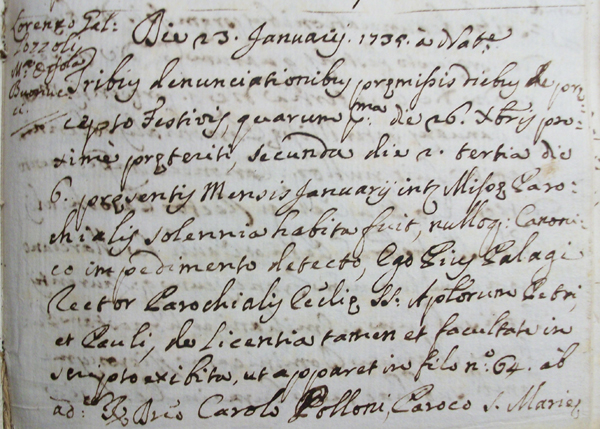 Lorenzo Gal:
Die 23. Januarij. 1735. à Nate
Tribus denunciationibus pręmissis diebus de prę
cepto Festivis, quarum pma. die 26. Xbris pro=
ximè pręteriti, secunda die 2. tertia die
6. pręsentis Mensis Januarij intr Missar Paro=
chialis solennia habita fuit, nulloq: Canoni=
co impedimento detecto, Ego Pius Palagi
Rector Parochialis Ecclię SS. Aplorum Petri,
et Pauli, de licentia tamen et facultate in
scripto exibita, ut apparet in filo no. 64. ab
ad: Rdo Carolo Polloni, Paroco S. Marię